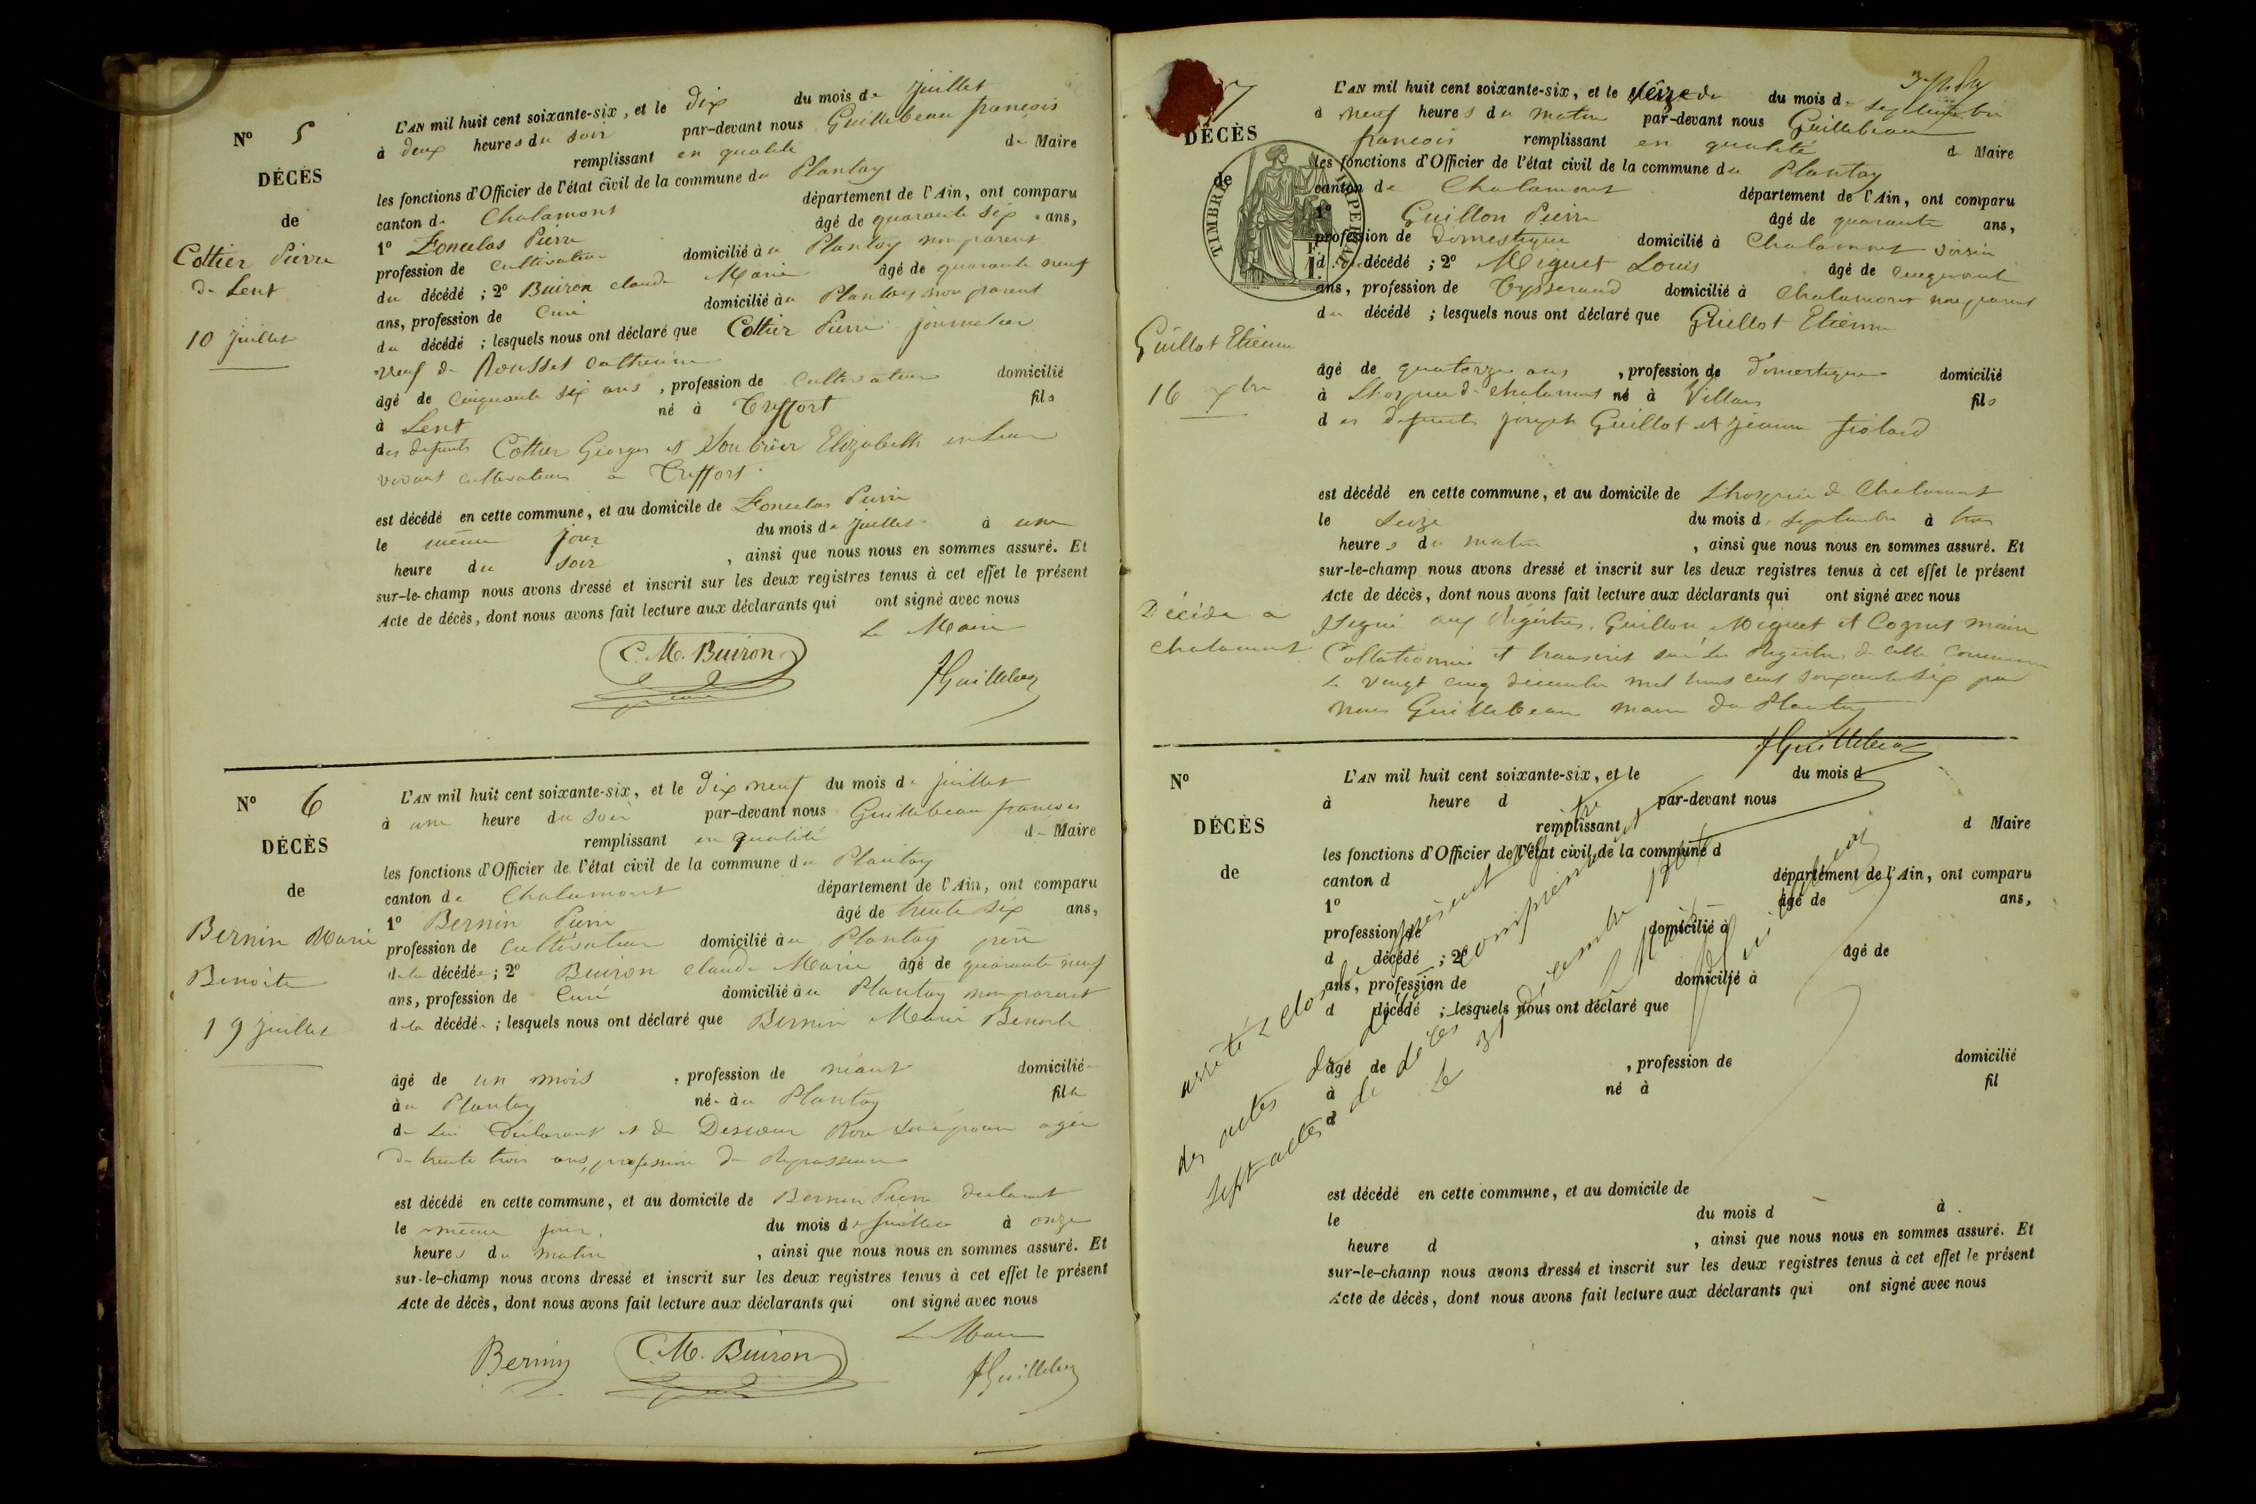 N° 5
DÉCÈS
de
Cottier Pierre
de Lent
10 Juillet
L'AN mil huit cent soixante-six, et le dix du mois de Juillet
à deux heures du soir par-devant nous Guillebeau françois
remplissant en qualité de Maire
les fonctions d'Officier de l'état civil de la commune du Plantay
canton de Chalamont département de l'Ain, ont comparu
1° Pierre âgé de quarante six ans,
profession de cultivateur domicilié au Plantay non parent
du décédé ; 2° Buiron claude Marie âgé de quarante neuf
ans, profession de Curé domicilié au Plantay non parent
du décédé ; lesquels nous ont déclaré que Cottier Pierre journalier
veuf de Rousset Catherine
âgé de Cinquante six ans, profession de Cultivateur domicilié
à Lent né à Treffort fils
des défunts Cottier Georges et Elizabeth
vivant cultivateurs a Treffort
est décédé en cette commune, et au domicile de Pierre
le même jour du mois de Juillet à une
heure du soir, ainsi que nous nous en sommes assuré. Et
sur-le-champ nous avons dressé et inscrit sur les deux registres tenus à cet effet le présent
Acte de décès, dont nous avons fait lecture aux déclarants qui ont signé avec nous
Le Maire
C. M. Buiron
curé
fGuillebeau
N° 6
DÉCÈS
de
Bernin Marie
Benoite
19 Juillet
L'AN mil huit cent soixante-six, et le dix neuf du mois de Juillet
à une heure du soir par-devant nous Guillebeau françois
remplissant en qualité de Maire
les fonctions d'Officier de l'état civil de la commune du Plantay
canton de Chalamont département de l'Ain, ont comparu
1° Bernin Pierre âgé de trente six ans,
profession de Cultivateur domicilié au Plantay père
de la décédée ; 2° Buiron Claude Marie âgé de quarante neuf
ans, profession de Curé domicilié au Plantay non parent
de la décédée ; lesquels nous ont déclaré que Bernin Marie Benoite
âgé de un mois, profession de néant domicilié
au Plantay née au Plantay fille
de lui Déclarant et de Rose son épouse agée
de trente trois ans, profession de Repasseuse
est décédé en cette commune, et au domicile de Bernin Pierre déclarant
le même jour du mois de Juillet à onze
heures du matin, ainsi que nous nous en sommes assuré. Et
sur-le-champ nous avons dressé et inscrit sur les deux registres tenus à cet effet le présent
Acte de décès, dont nous avons fait lecture aux déclarants qui ont signé avec nous
Le Maire
Bernin
C. M. Buiron
fGuillebeau
7
DÉCÈS
de
TIMBRE IMPERIAL
Guillot Etienne
16 7bre
Décédé a
Chalamont
L'AN mil huit cent soixante-six, et le seize du mois de Septembre
à neuf heures du matin par-devant nous Guillebeau
françois remplissant en qualité de Maire
les fonctions d'Officier de l'état civil de la commune du Plantay
canton de Chalamont département de l'Ain, ont comparu
1° Guillon Pierre âgé de quarante ans,
profession de domestique domicilié à Chalamont voisin
du décédé ; 2° Miguet Louis âgé de cinquante
ans, profession de Tysserand domicilié à Chalamont non parent
du décédé ; lesquels nous ont déclaré que Guillot Etienne
âgé de quatorze ans, profession de Domestique domicilié
à L'hospice de Chalamont né à Villars fils
des défunts Joseph Guillot et Jeanne
est décédé en cette commune, et au domicile de L'hospice de Chalamont
le Seize du mois de Septembre à trois
heures du matin, ainsi que nous nous en sommes assuré. Et
sur-le-champ nous avons dressé et inscrit sur les deux registres tenus à cet effet le présent
Acte de décès, dont nous avons fait lecture aux déclarants qui ont signé avec nous
Signé aux Régistres. Guillon, Miguet et Cognet maire
Collationné et transcrit sur les Régistres de cette Commune
le vingt cinq décembre mil huit cent soixante six par
nous Guillebeau maire du Plantay
fGuillebeau
N°
DÉCÈS
de
L'AN mil huit cent soixante-six, et le du mois d
à heure d par-devant nous
remplissant d Maire
les fonctions d'Officier de l'état civil de la commune d
canton d département de l'Ain, ont comparu
1° âgé de ans,
profession de domicilié à
d décédé ; 2° âgé de
ans, profession de domicilié à
d décédé ; lesquels nous ont déclaré que
âgé de , profession de domicilié
à né à fil
d
est décédé en cette commune, et au domicile de
le du mois d à
heure d , ainsi que nous nous en sommes assuré. Et
sur-le-champ nous avons dressé et inscrit sur les deux registres tenus à cet effet le présent
Acte de décès, dont nous avons fait lecture aux déclarants qui ont signé avec nous
arrêté & clos le présent registre
des actes de décès comprenant
sept actes de décès
le 31 Décembre 1866